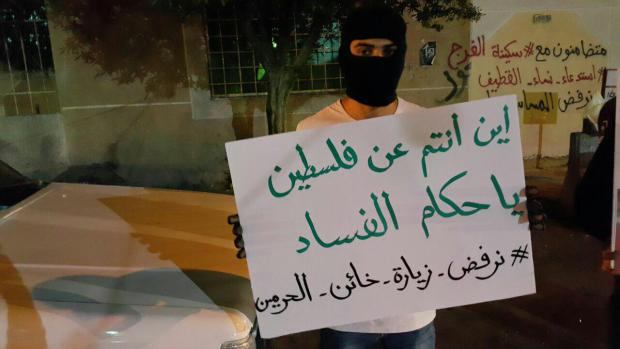 اين انتم عن فلسطين
يا حكام الفساد
#نرفض-زيارة-خائن-الحرمين
متضامنون مع #سكينة الفرج
#استدعاء-نساء-القطيف
نرفض